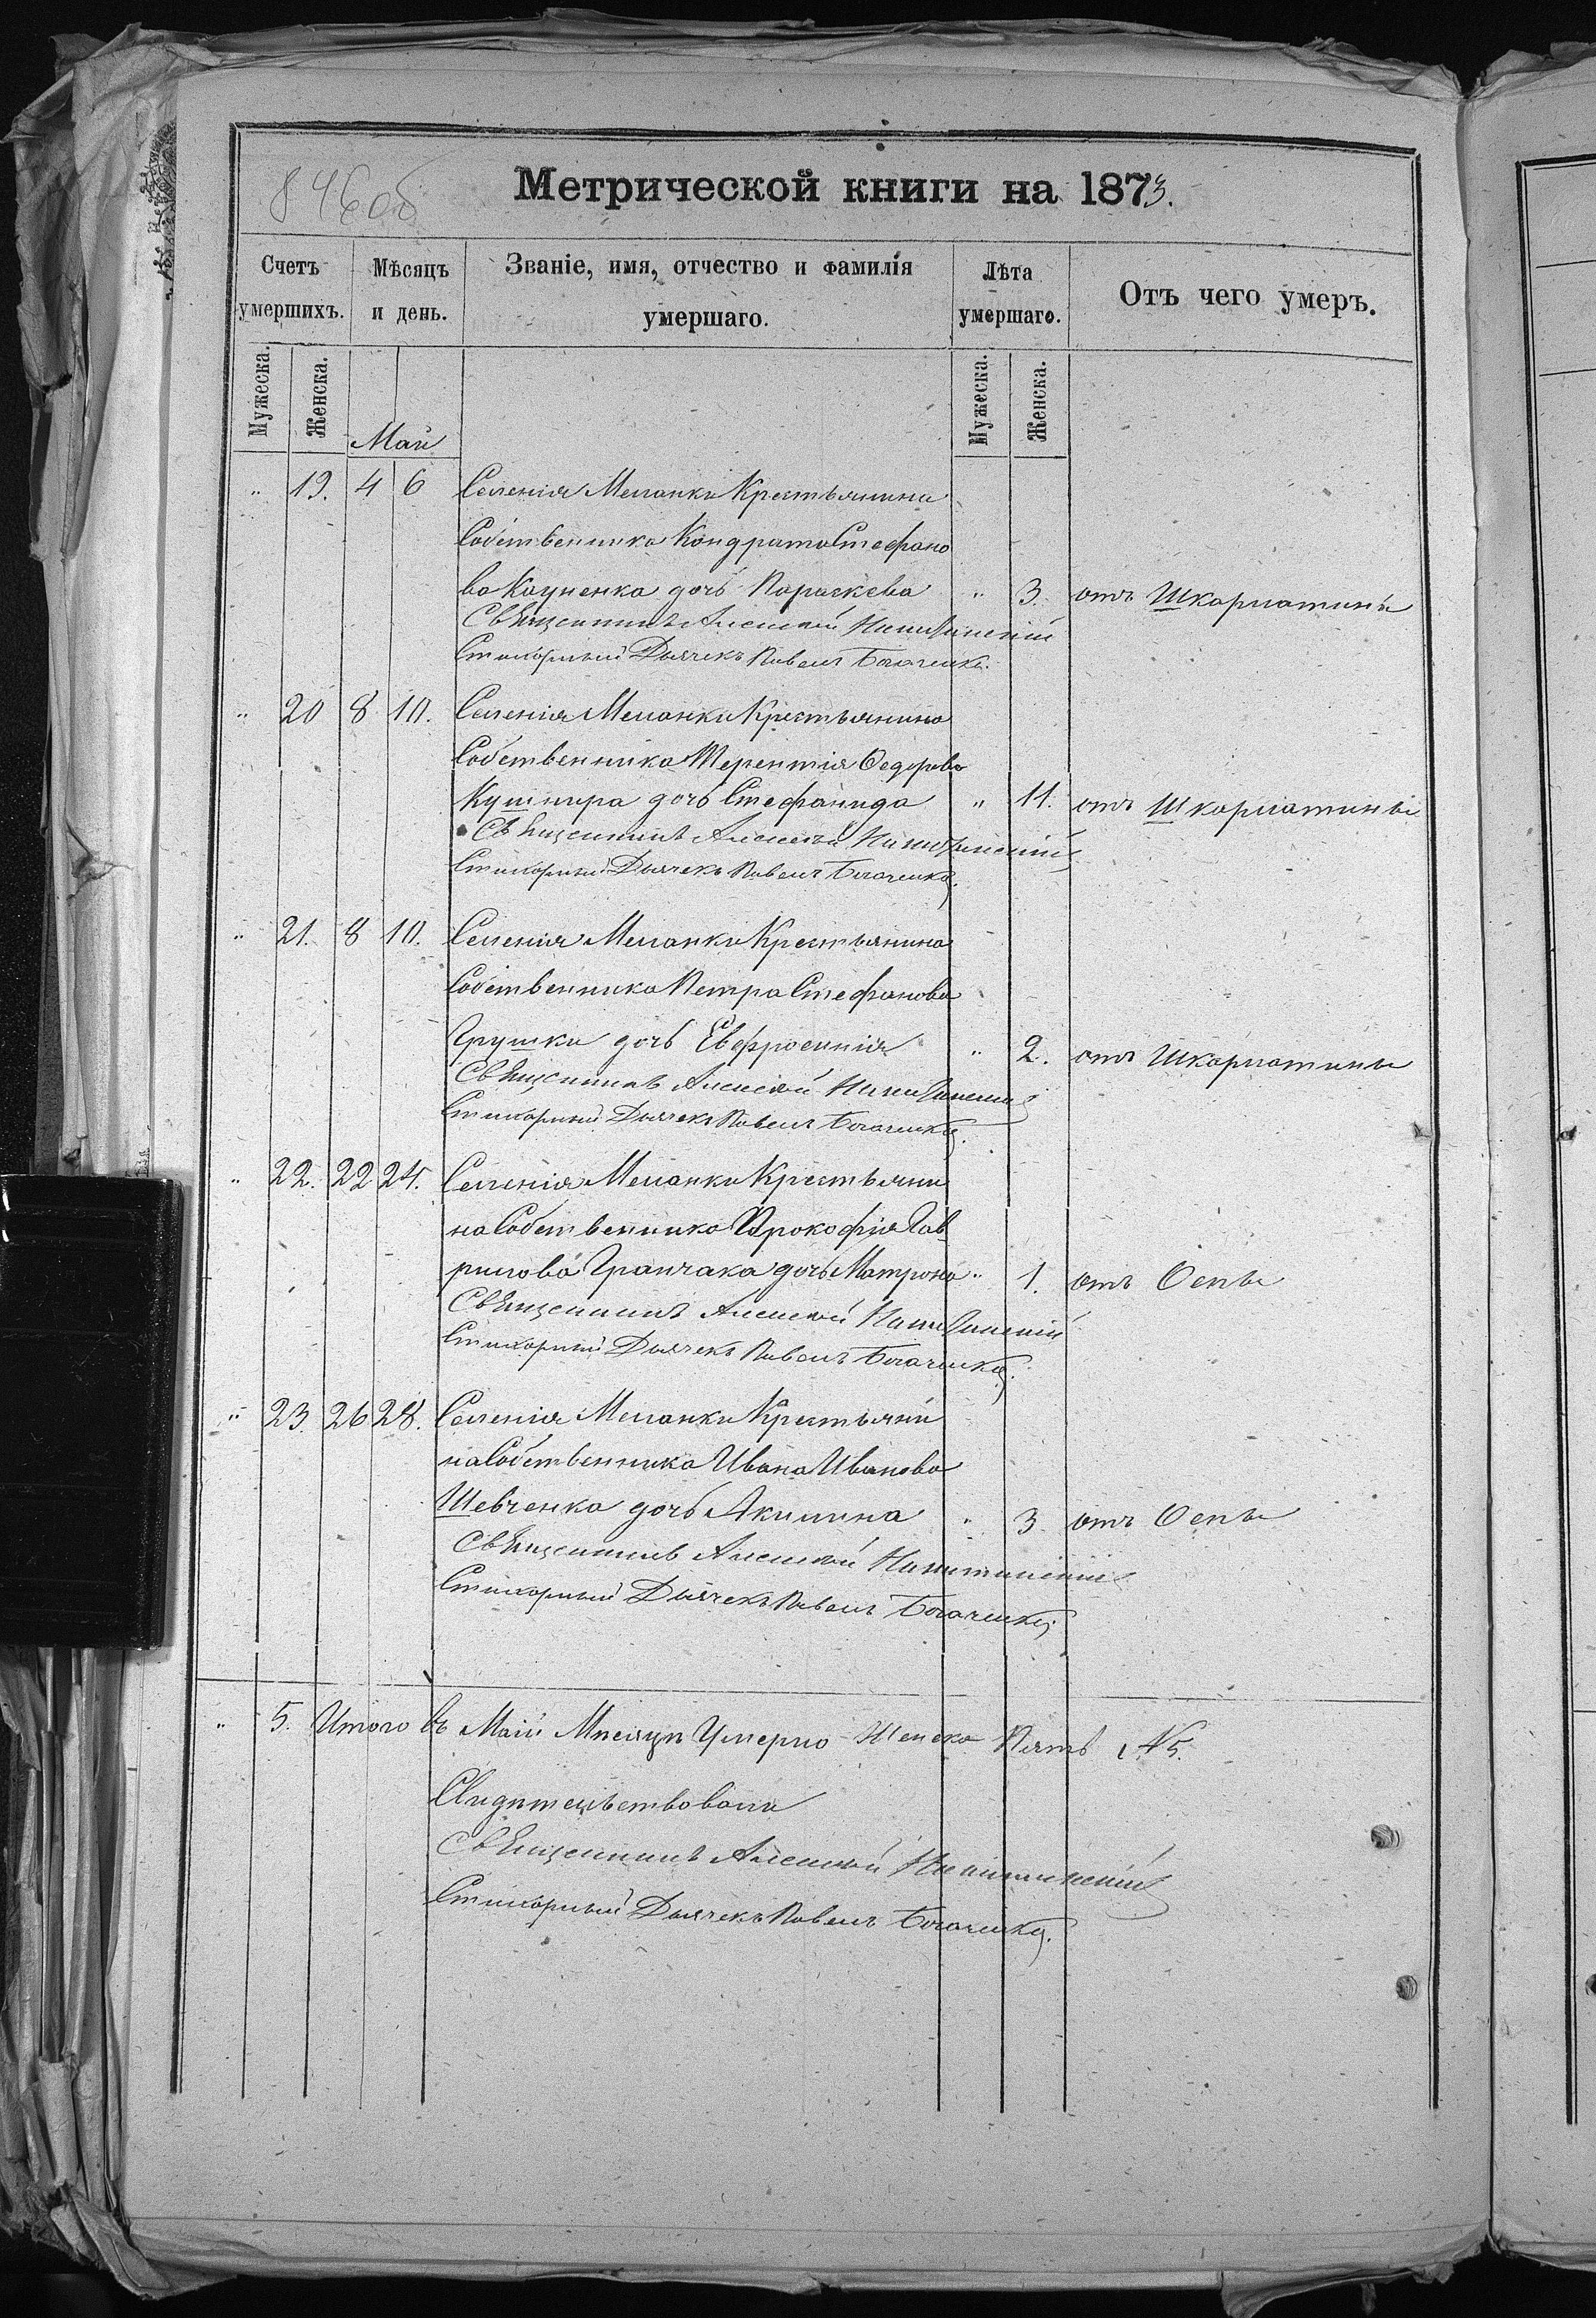 846об
Метрической книги на 1873.
Счетъ умершихъ. Мѣсяцъ и день. Званіе, имя, отчество и фамилія умершаго. Лѣта умершаго. Отъ чего умеръ.
Мужеска. Женска. Мужеска. Женска.
Май
" 19. 4 6 Селенія Меланки Крестьянина
Собственника Кондрата Стефано
ва Кауненка дочь Параскева " 3. отъ Шкарлатины
Священникъ Алексѣй
Стихарный Дьячекъ Павелъ
" 20 8 10. Селенія Меланки Крестьянина
Собственника Терентія Ѳедорова
Кушнира дочь Стефанида " 11. отъ Шкарлатины
Священникъ Алексѣй
Стихарный Дьячекъ Павелъ
" 21. 8 10. Селенія Меланки Крестьянина
Собственника Петра Стефанова
Грушки дочь Евфросинія " 2. отъ Шкарлатины
Священникъ Алексѣй
Стихарный Дьячекъ Павелъ
" 22. 22 24. Селенія Меланки Крестьяни
на Собственника Прокофія Гав
рилова Гранчака дочь Матрона " 1. отъ Оспы
Священникъ Алексѣй
Стихарный Дьячекъ Павелъ
" 23. 26 28. Селенія Меланки Крестьяни
на Собственника Ивана Иванова
Шевченка дочь Акилина " 3 отъ Оспы
Священникъ Алексѣй
Стихарный Дьячекъ Павелъ
" 5. Итого въ Маіи Мѣсяцѣ Умерло Женска Пять № 5.
Свидѣтельствовали
Священникъ Алексѣй
Стихарный Дьячекъ Павелъ